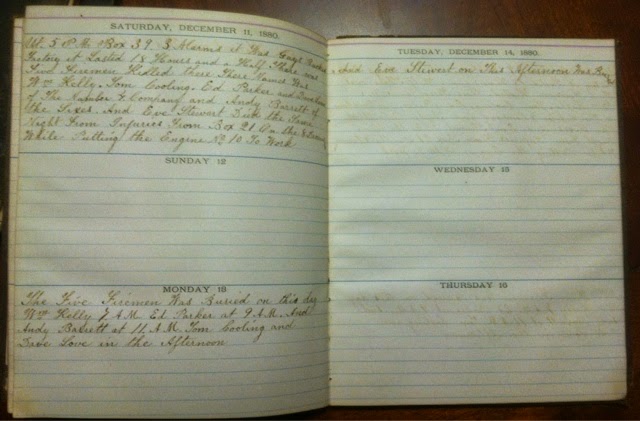 SATURDAY, DECEMBER 11, 1880.
At 5 P.M. Box 39 3 Alarms it Was Gays
Factory it Lasted 18 Hours and a Half There was
Five Firemen Killed there There Names Was
Wm Kelly. Tom Cooling. Ed Parker and
The Number 4 Company and Andy Barrett of
the Sixes And Eve Stewert Died the Same
Night From Injuries From Box 21 On the
While Putting the Engine No 10 To Work
SUNDAY 12
MONDAY 13
The Five Firemen Was Buried on this day
Wm Kelly 7 A.M Ed Parker at 9 A.M. And
Andy Barrett at 11 A.M Tom Cooling and
Love in the Afternoon
TUESDAY, DECEMBER 14, 1880.
And Eve Stewert on This Afternoon Was
WEDNESDAY 15
THURSDAY 16